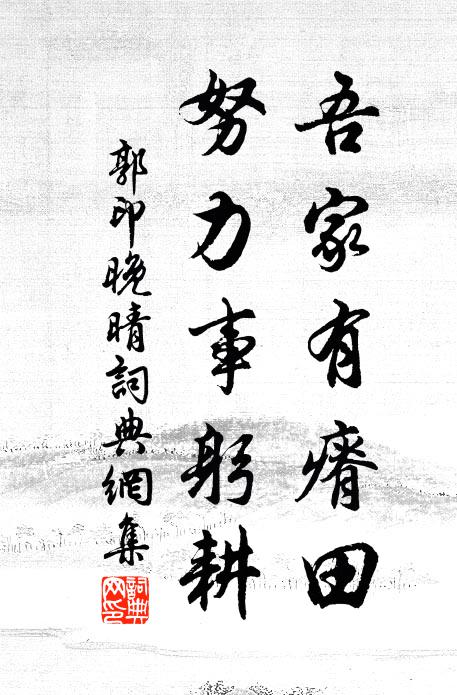 吾家有瘠田
努力事躬耕
郭印晚晴詞典網集
詞典
网印